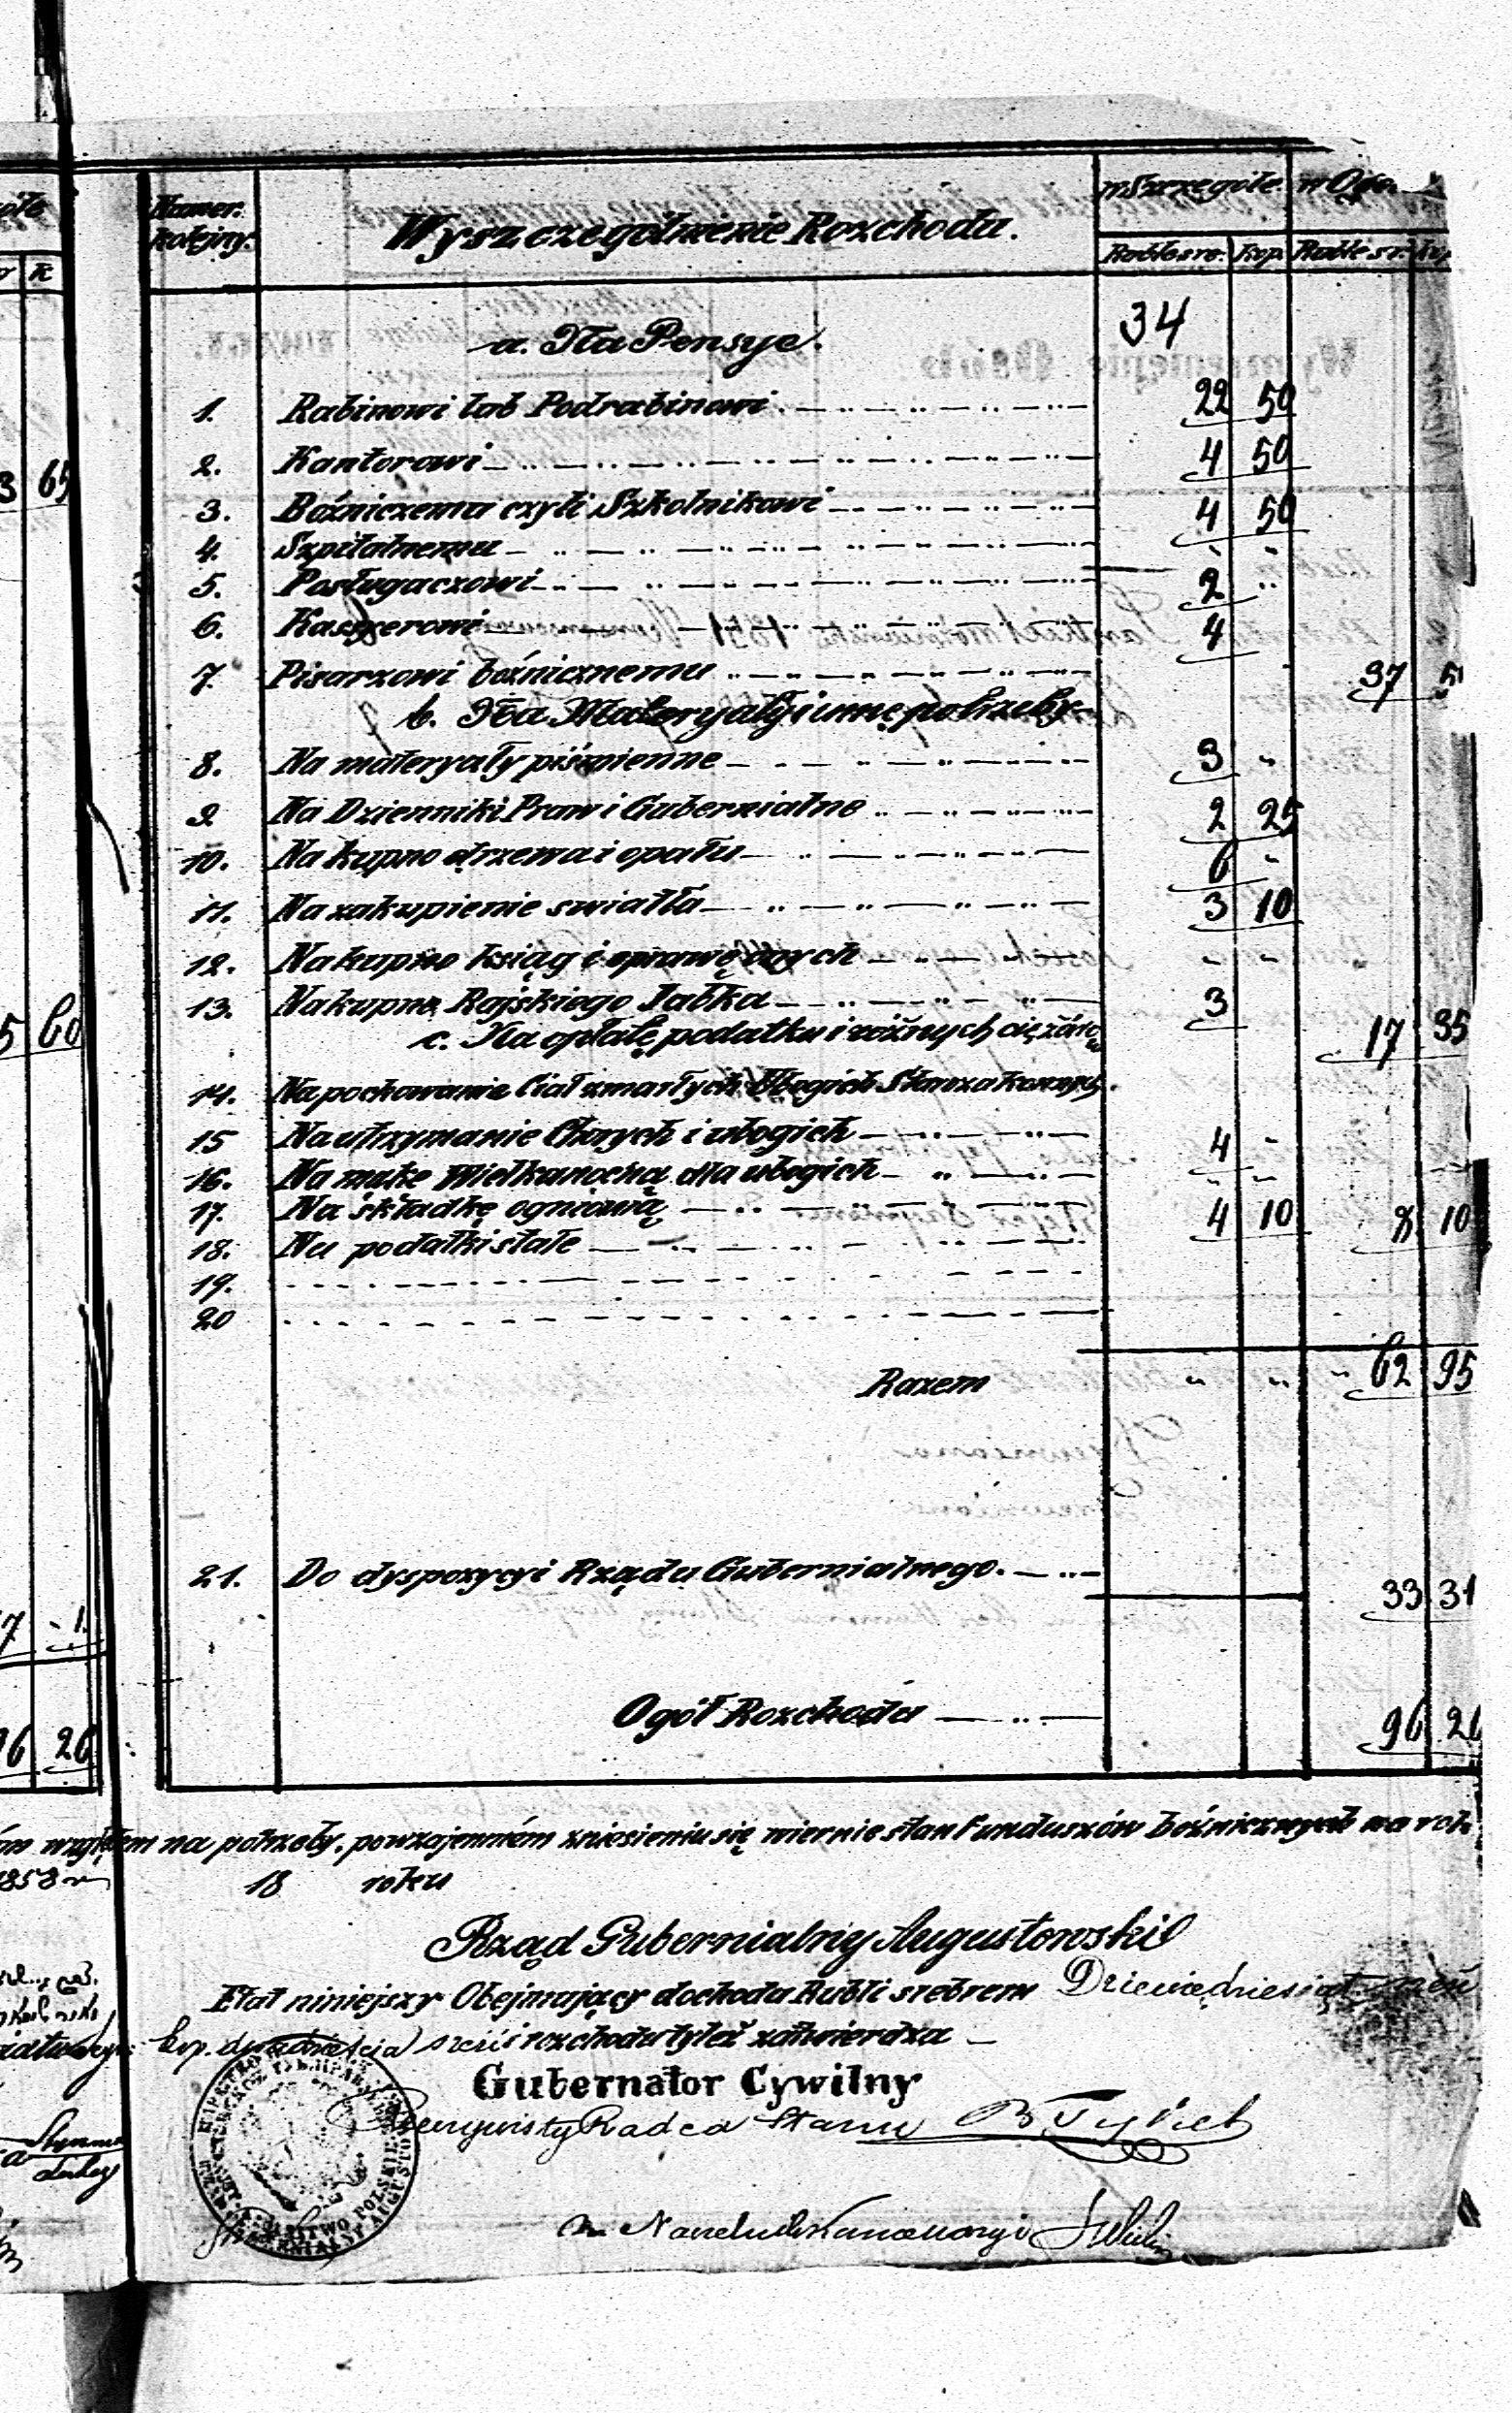 Numer kolejny.
Wyszczególnienie Rozchodu.
w Szczególe. w Ogó
Ruble sre. Kop. Ruble sr. Kop
34
a. Na Pensye.
1. Rabinowi lub Podrabinowi. 22 50
2. Kantorowi 4 50
3. Bóźniczemu czyli Szkolnikowi 4 50
4. Szpitalnemu " "
5. Posługaczowi 2 "
6. Kassyerowi 4
7. Pisarzowi bóżnicznemu 37 5
b. Na Materyały i inne potrzeby
8. Na materyały piśmienne 3 "
9 Na Dzienniki Praw i Gubernialne 2 25
10. Na kupno drzewa i opału 6 "
11. Na zakupienie swiatła 3 10
12. Na kupno ksiąg i oprawę tych " "
13. Na kupno Rajskiego Jabłka 3
17 35
c. Na opłatę podatku i różnych ciężarów
14. Na pochowanie Ciał zmarłych Ubogich Starozakonnych.
15 Na utrzymanie Chorych i ubogich 4 "
16. Na mąkę Wielkanocną dla ubogich " "
17. Na składkę ogniową 4 10 8 10
18. Na podatki stałe
19.
20
Razem " " " 62 95
21. Do dyspozycyi Rządu Gubernialnego. 33 31
Ogół Rozchodu 96 26
względem na potrzeby, po wzajemném zniesieniu się wiernie stan Funduszów bóżnicznych na rok
1858
18 roku
Rząd Gubernialny Augustowski
Etat niniejszy Obejmujący dochodu Rubli srebrem Dziewięćdziesiąt sześć
kop. dwadzieścia sześć i rozchodu tyleż zatwierdza
Gubernator Cywilny
Rzeczywisty Radca Stanu
Naczelnik Kancellaryi